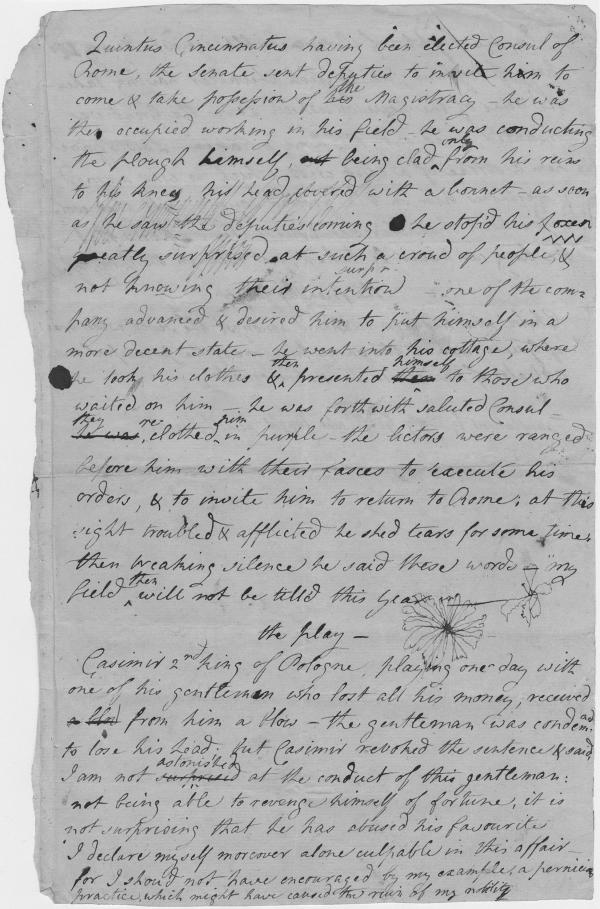 Quintus Cincinnatus having been elected Consul of
Rome, the senate sent deputies to invite him to
come & take possession of his the Magistracy – he was
then occupied working in his field – he was conducting
the plough himself, being clad only from his reins
to his knees his head covered with a bonnet – as soon
as he saw the deputies coming he stop'd his oxen
greatly surprised at such a croud of people, &
not knowing their intention surpr – one of the com-
pany advanced & desired him to put himself in a
more decent state – he went into his cottage, where
he took his clothes & then presented them himself to those who
waited on him – he was forthwith saluted Consul –
he was they re-clothed him in purple – the lictors were ranged
before him with their fasces to execute his
orders, & to invite him to return to Rome; at this
sight troubled & afflicted he shed tears for some time,
then breaking silence he said these words – "my
field then will not be till'd this year
the play –
Casimir 2nd king of Pologne, playing one day with
one of his gentlemen who lost all his money, received
a blow from him a blow – the gentleman was condemnad
to lose his head. but Casimir revoked the sentence & said,
I am not surprised astonished at the conduct of this gentleman:
not being able to revenge himself of fortune, it is
not surprising that he has abused his favourite
I declare myself moreover alone culpable in this affair –
for I should not have encouraged by my example, a pernicious
practice, which might have caused the ruin of my nobility